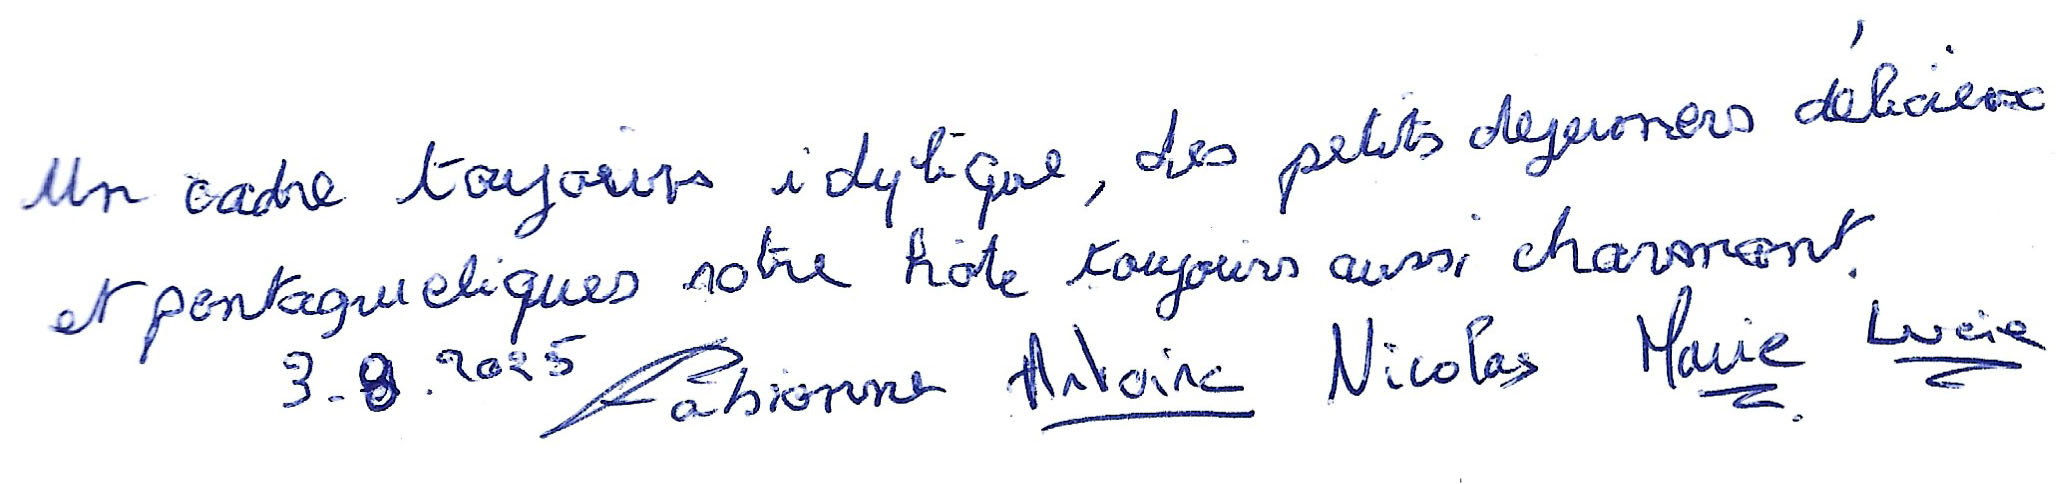 Un cadre toujours idylique, des petits dejeuners délicieux
et pentagrueliques notre hôte toujours aussi charmant.
3.8.2025 Fabienne Antoine Nicolas Marie Lucie